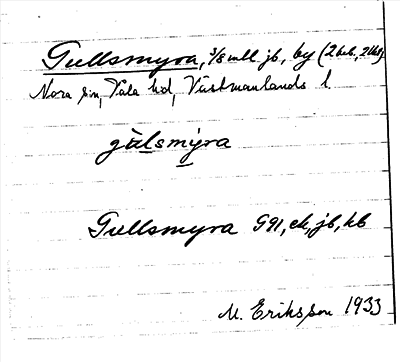 Gullsmyra, 3/8 mtl jb, by (2 hel., 2 lht)
Nora sn, Våla hd, Västmanlands l.
gùlsmýra
Gullsmyra G91, ek, jb, kb
M. Eriksson 1933